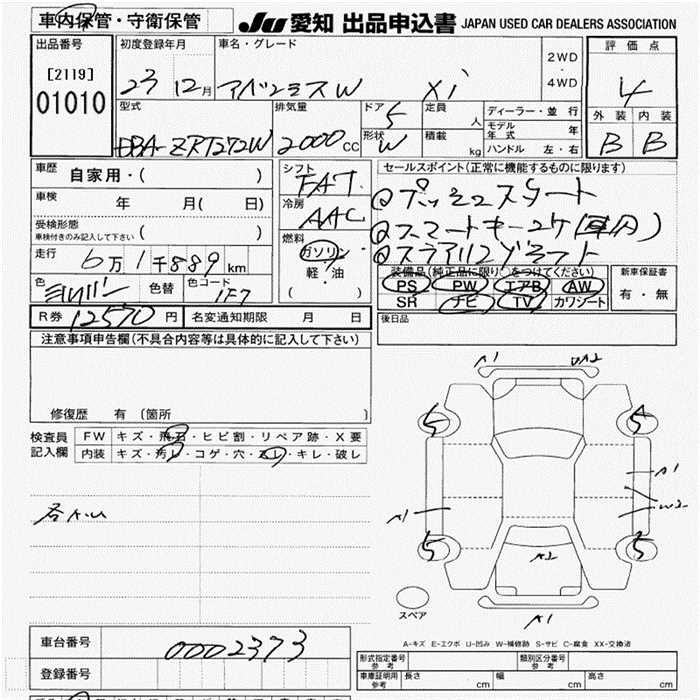 車内保管・守衛保管
JU 愛知 出品申込書 JAPAN USED CAR DEALERS ASSOCIATION
出品番号
[2119]
01010
初度登録年月
23 12月
車名・グレード
アベンシスW Xi
2WD
・
4WD
評価点
4
外装 内装
B B
型式
DBA-ZRT272W
排気量
2000 CC
ドア 5
形状 W
定員 人
積載 kg
ディーラー・並行
モデル年式 年
ハンドル 左・右
車歴
自家用・( )
車検 年 月( 日)
受検形態
車検付きのみ記入して下さい ( )
走行
6万1千889km
色 色替 色コード
1F7
シフト
FAT
冷房
AAC
燃料
ガソリン
軽・油
( )
セールスポイント(正常に機能するものに限ります)
プッシュスタート
スマートキー2ケ
装備品(純正品に限り○をつけてください)
PS PW エアB AW
SR ナビ TV カワシート
新車保証書
有・無
後日品
R券 12570円
名変通知期限 月 日
注意事項申告欄(不具合内容等は具体的に記入して下さい)
修復歴 有 〔箇所 〕
検査員
記入欄
FW キズ・飛石・ヒビ割・リペア跡・X要
内装 キズ・汚レ・コゲ・穴・スレ・キレ・破レ
各AU
A1
A2
5 5
A1
W2
A1
5 5
A2
スペア
A1
A-キズ E-エクボ U-凹み W-補修跡 S-サビ C-腐食 XX-交換済
車台番号
0002373
登録番号
形式指定番号
参考
類別区分番号
参考
車庫証明用
参考
長さ cm 幅 cm 高さ cm